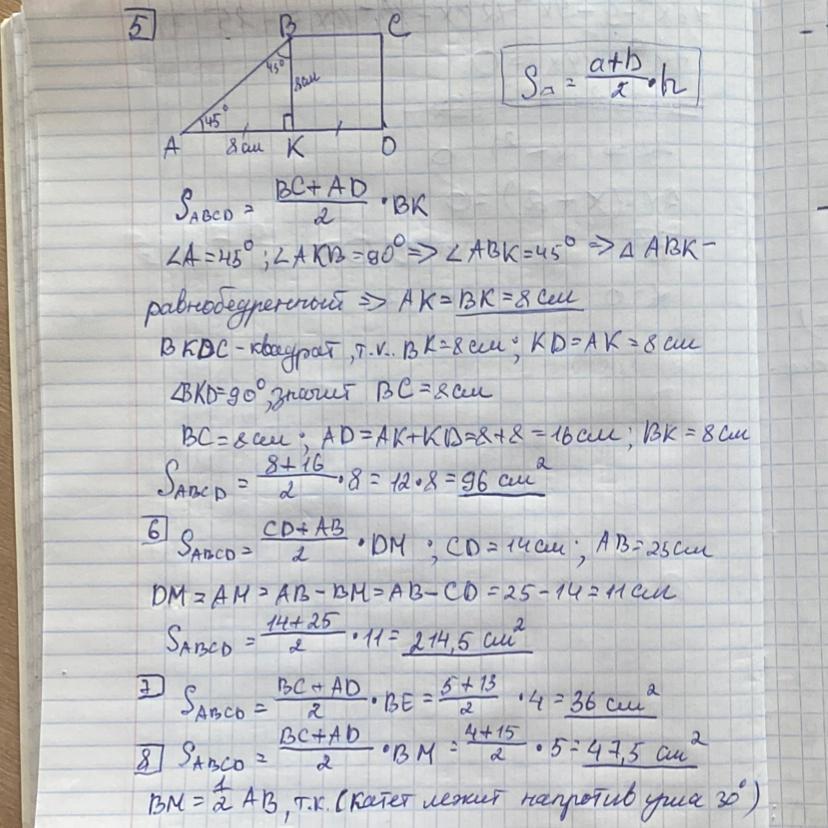 5 B C
45° 8см
45°
A 8см K D
Sп = (a+b)/2 · h
S_ABCD = (BC+AD)/2 · BK
∠A=45°; ∠AKB=90° => ∠ABK=45° => △ABK –
равнобедренный => AK=BK=8см
BKDC – квадрат, т.к. BK=8см; KD=AK=8см
∠BKD=90°, значит BC=8см
BC=8см; AD=AK+KD=8+8=16см; BK=8см
S_ABCD = (8+16)/2 · 8 = 12·8 = 96 см²
6 S_ABCD = (CD+AB)/2 · DM; CD=14см; AB=25см
DM = AM = AB-BM=AB-CD=25-14=11см
S_ABCD = (14+25)/2 · 11 = 214,5 см²
7 S_ABCD = (BC+AD)/2 · BE = (5+13)/2 · 4 = 36 см²
8 S_ABCD = (BC+AD)/2 · BM = (4+15)/2 · 5 = 47,5 см²
BM = 1/2 AB, т.к. (катет лежит напротив угла 30°)